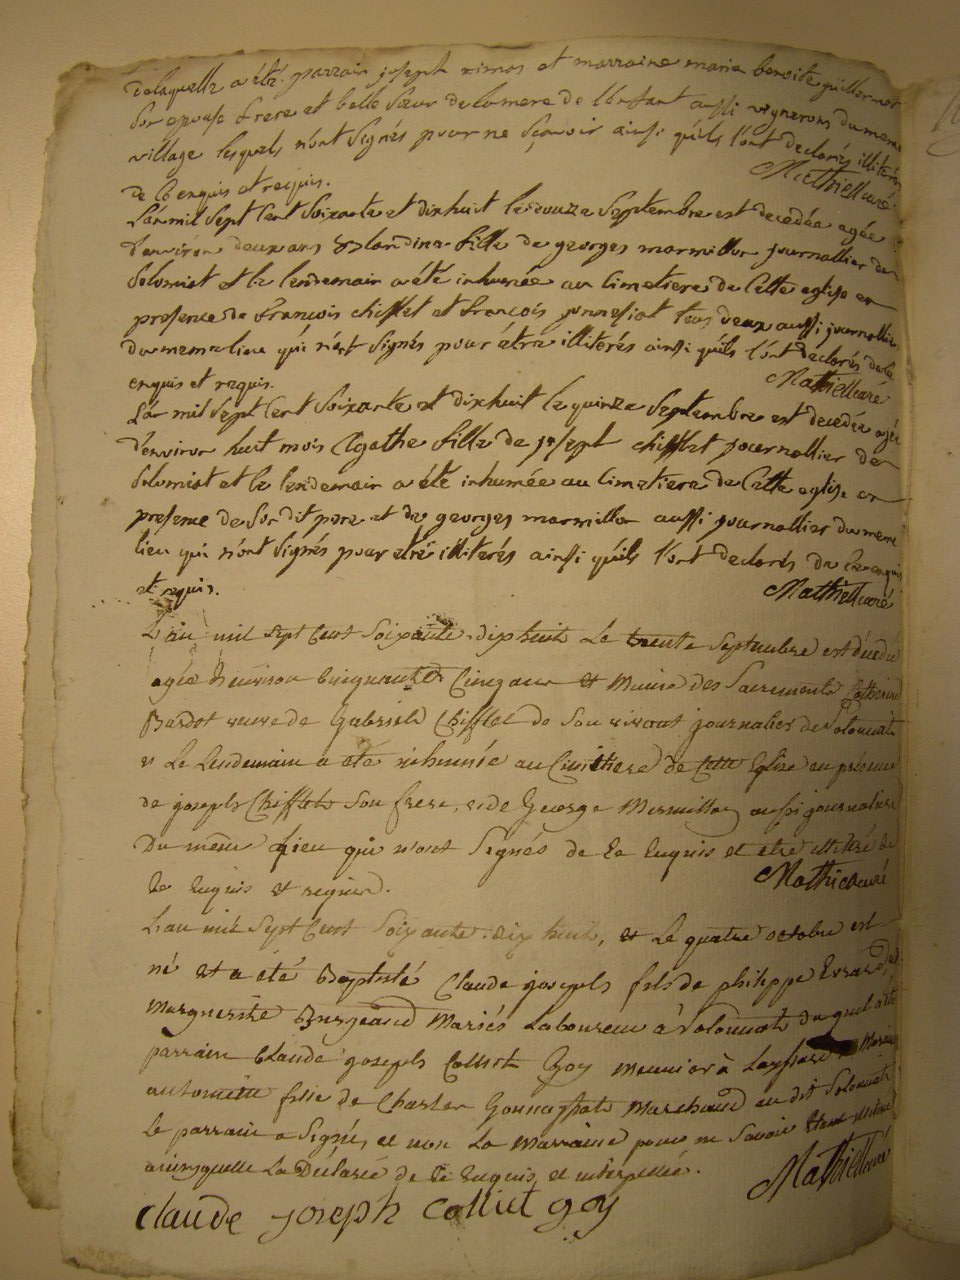 delaquelle a été parrain joseph rimos et marraine marie benoite guillermot
son epouse frere et belle sœur de la mere de l'enfant aussi vignerons du meme
village lesquels n'ont signés pour ne sçavoir ainsi qu'ils l'ont declarés illiterés
de ce enquis et requis. Mathieu curé
L'an mil sept cent soixante et dixhuit le douze septembre est decedée agée
d'environ deux ans blandine fille de georges marmillon journallier de
Solomiat et le lendemain a été inhumée au cimetiere de cette eglise en
presence de françois chifflet et francois tous deux aussi journallier
du meme lieu qui n'ont signés pour être illiterés ainsi qu'ils l'ont declarés de ce
enquis et requis. Mathieu curé
L'an mil sept cent soixante et dixhuit le quinze septembre est decedée agée
d'environ huit mois Agathe fille de joseph chifflet journallier de
Solomiat et le lendemain a été inhumée au cimetiere de cette eglise en
presence de son dit pere et de georges marmillon aussi journallier du meme
lieu qui n'ont signés pour être illiterés ainsi qu'ils l'ont declarés de ce enquis
et requis. Mathieu curé
L'an mil sept cent soixante dixhuit le trente septembre est décedée
agée d'environ cinquante cinq ans et munie des sacrements Catherine
Bardot veuve de Gabriel Chifflet de son vivant journalier de Solomiat
et le lendemain a été inhumée au cimitiere de cette Eglise en présence
de joseph Chifflet son frere, et de George Marmillon aussi journalier
du meme lieu qui n'ont signés de ce enquis et être illitéré de
ce enquis et requis. Mathieu curé
L'an mil sept cent soixante dix huit, et le quatre octobre est
né et a été Baptisé Claude joseph fils de philippe Evrard et
Marguerite Mariés Laboureur à Solomiat duquel a été
parrain Claude joseph Colliet Goy meunier à et Marie
antoinette fille de Charles Marchand au dit Solomiat
Le parrain a signé, et non la Marraine pour ne savoir étant illitéré
ainsi quelle la Déclarée de ce enquis et interpellée. Mathieu curé
claude joseph colliet goy